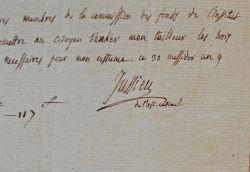 membres de la commission des fonds de l'Institut
remettre au citoyen mon tailleur les trois
necessaires pour mon costume. ce 30 messidor an 9
Jussieu
de l'Inst. national